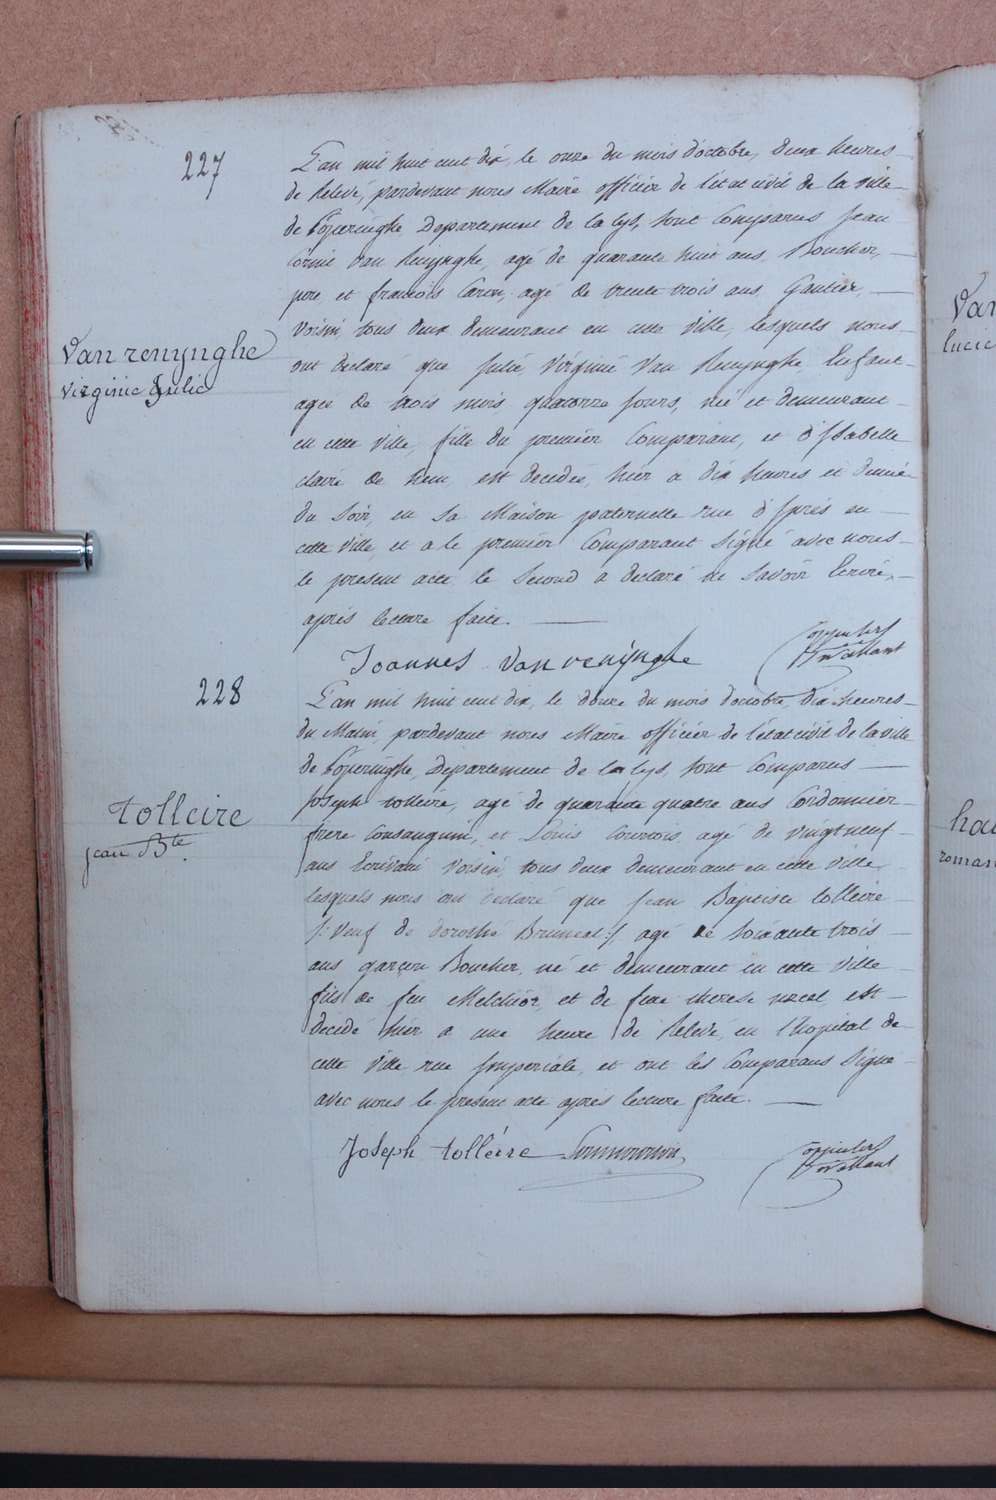 227
L'an mil huit cent dix, le onze du mois d'octobre, deux heures
de Relevé, pardevant nous Maire officier de l'état civil de la ville
de Poperinghe, Departement de la lys, sont Comparus Jean
Van Renynghe, agé de quarante huit ans, Boucher,
pere et francois Caron, agé de trente trois ans, Gantier,
Voisin, tous deux demeurant en cette Ville, lesquels nous
ont declaré que Julie Virginie Van Renynghe Enfant
agée de trois mois quatorze jours, née et demeurant
en cette Ville, fille du premier Comparant, et d'Isabelle
claire de heu, est decedée, hier a dix heures et demie
du Soir, en Sa Maison paternelle rue d'Ipres en
cette Ville, et a le premier Comparant Signé avec nous
le present acte le Second a declaré ne Savoir Ecrire,
après lecture faite.
Van renynghe
virginie Julie
Joannes Van renynghe
228
L'an mil huit cent dix, le douze du mois d'octobre, dix heures
du Matin, pardevant nous Maire officier de l'état civil de la ville
de Poperinghe, Departement de la lys, sont Comparus
Joseph tolleire, agé de quarante quatre ans Cordonnier
frere Consanguin, et Louis Courtois agé de vingt neuf
ans Ecrivain Voisin, tous deux demeurant en cette Ville
lesquels nous ont declaré que Jean Baptiste tolleire
/: Veuf de dorothé Bruneel :/ agé de Soixante trois
ans garçon Boucher, né et demeurant en cette Ville
fils de feu Melchior, et de feue therese est
decedé hier a une heure de Relevé, en l'hopital de
cette Ville rue Imperiale, et ont les Comparans Signé
avec nous le present acte apres lecture faite.
tolleire
jean Bte
Joseph tolleire
Van
lucie
roman